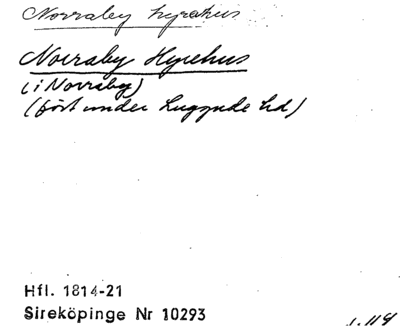 Norraby hyrehus
Norraby Hyrehus
(i Norraby)
(fört under Luggude hd)
Hfl. 1814-21
Sireköpinge Nr 10293
s. 114